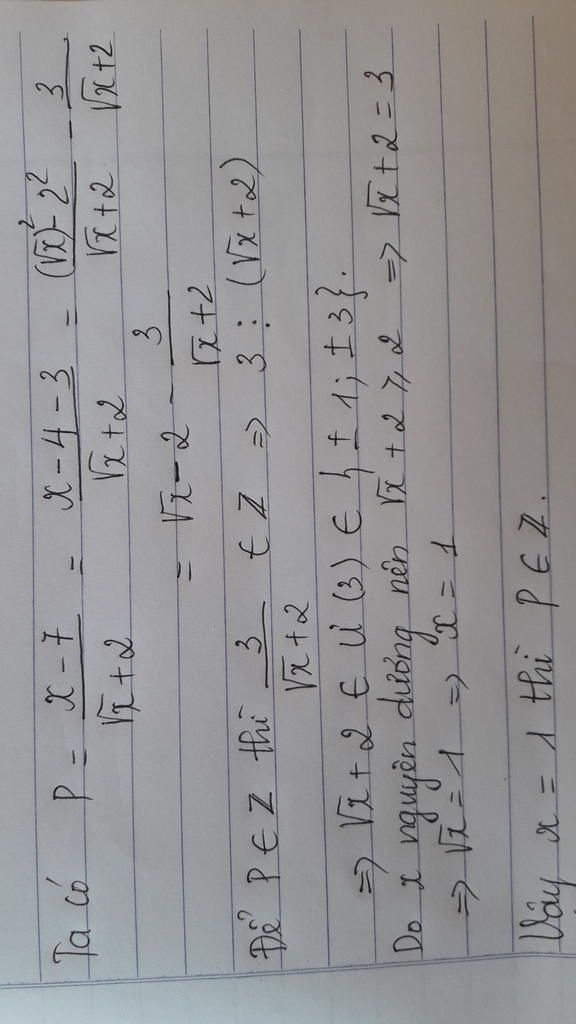 Ta có P = \frac{x-7}{\sqrt{x}+2} = \frac{x-4-3}{\sqrt{x}+2} = \frac{(\sqrt{x})^2-2^2}{\sqrt{x}+2} - \frac{3}{\sqrt{x}+2}
= \sqrt{x}-2 - \frac{3}{\sqrt{x}+2}
Để P ∈ Z thì \frac{3}{\sqrt{x}+2} ∈ Z => 3 ⋮ (\sqrt{x}+2)
=> \sqrt{x}+2 ∈ Ư(3) ∈ {±1; ±3}.
Do x nguyên dương nên \sqrt{x}+2 ≥ 2 => \sqrt{x}+2 = 3
=> \sqrt{x} = 1 => x = 1
Vậy x = 1 thì P ∈ Z.